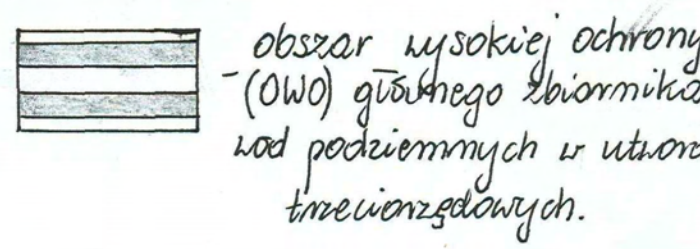 obszar wysokiej ochrony
- (OWO) głównego zbiornika
wód podziemnych w utwor
trzeciorzędowych.